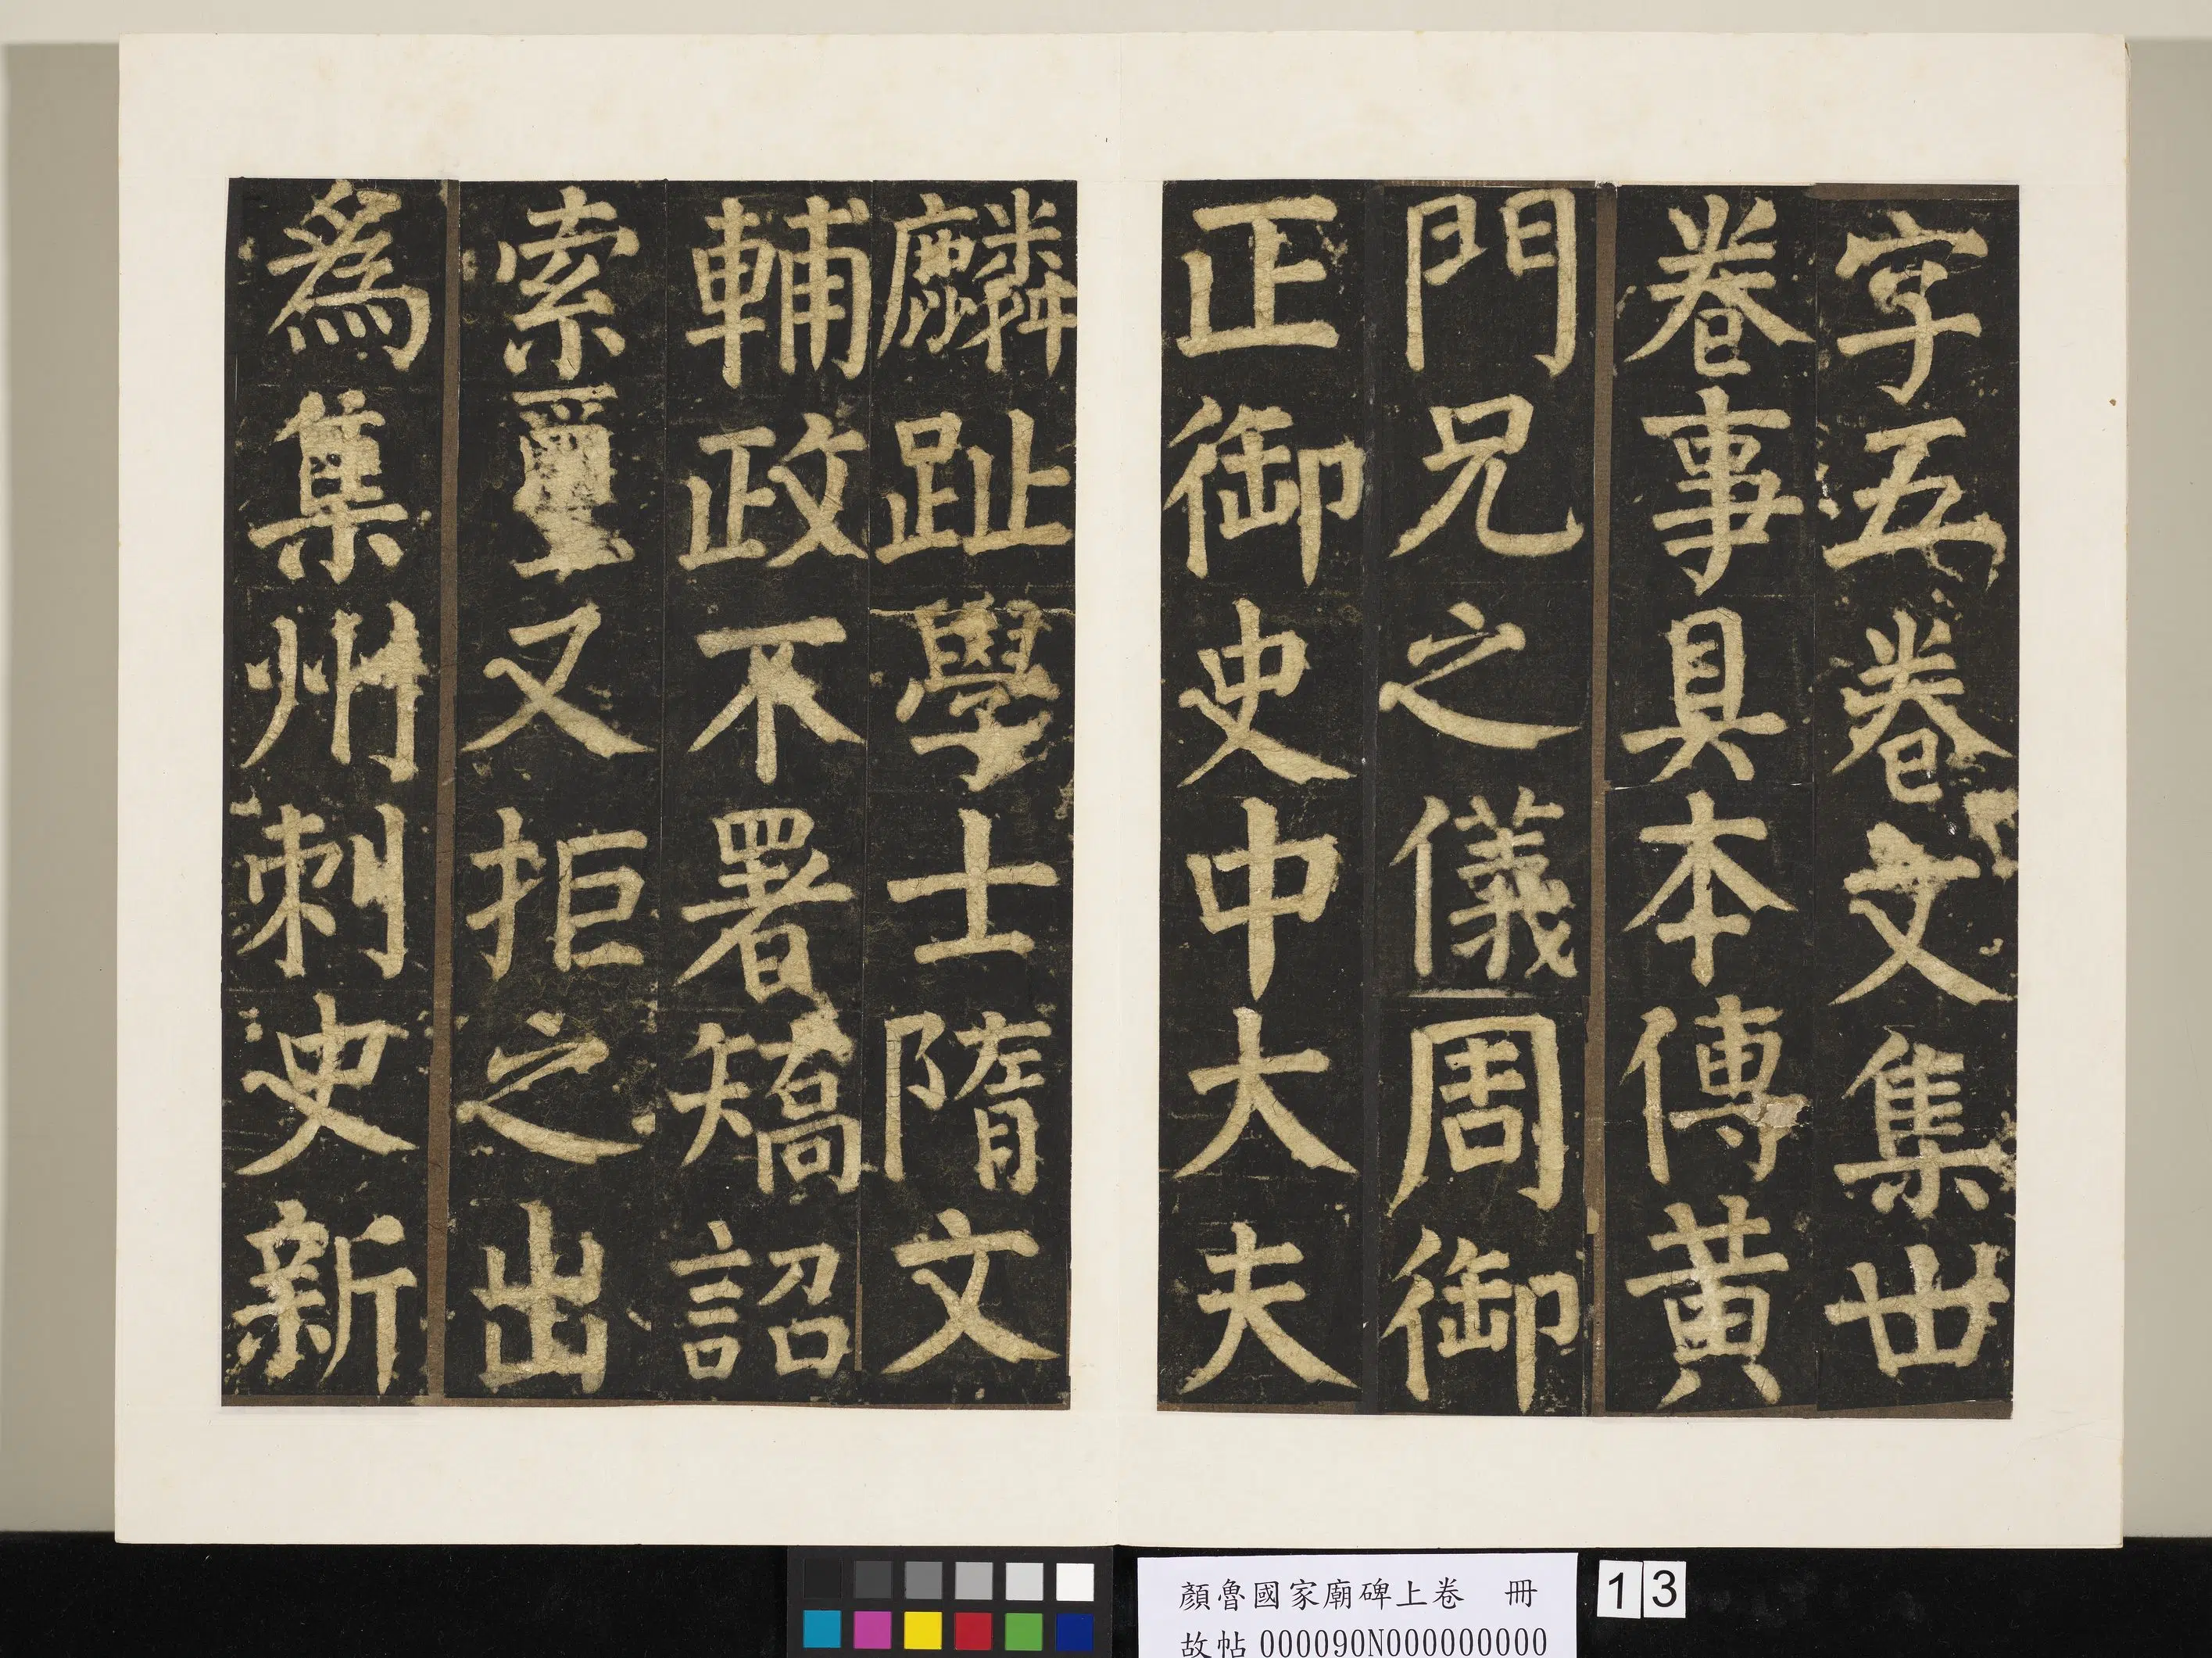 字五卷文集卅
卷事具本傳黃
門兄之儀周御
正御史中大夫
麟趾學士隋文
輔政不署矯詔
索璽又拒之出
爲集州刺史新
顏魯國家廟碑上卷 冊
故帖000090N000000000
13